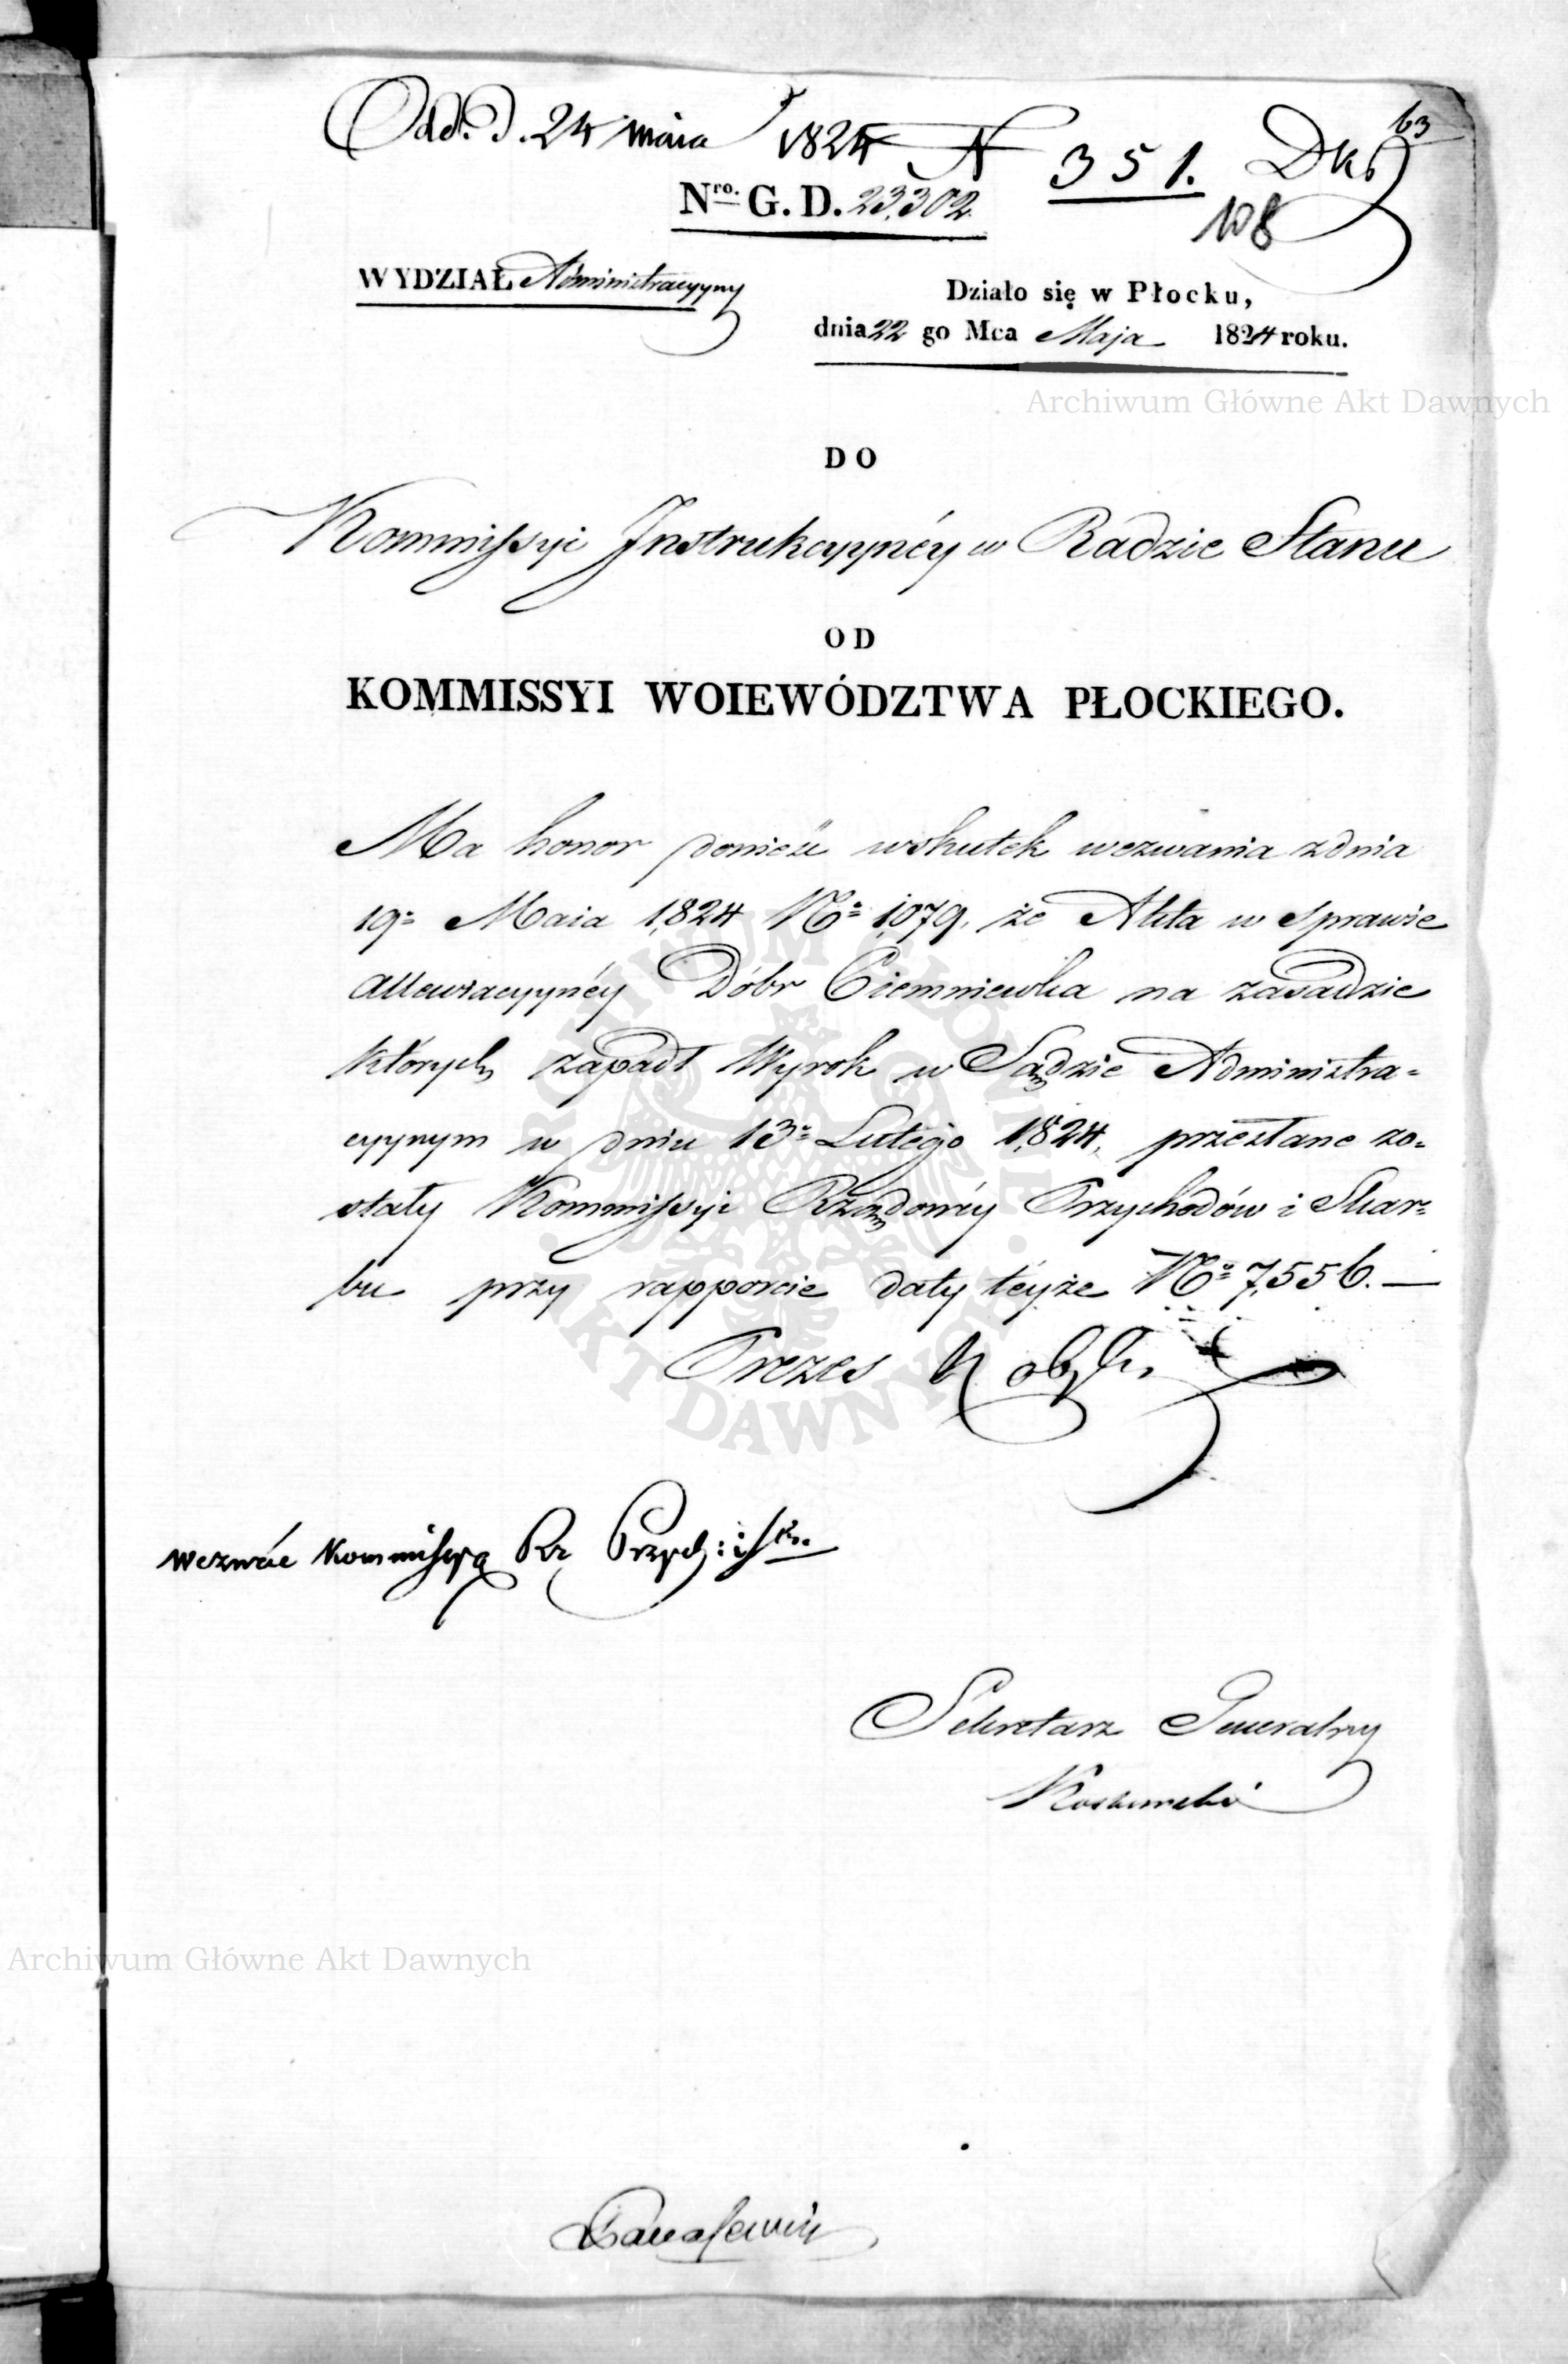 Odd. d. 24 maia 1824 N 351. Dki
63
108
Nro. G. D. 23,302
WYDZIAŁ Administracyyny
Działo się w Płocku,
dnia 22 go Mca Maja 1824 roku.
Archiwum Główne Akt Dawnych
DO
Kommissyi Instrukcyynéy w Radzie Stanu
OD
KOMMISSYI WOIEWÓDZTWA PŁOCKIEGO.
Ma honor donieść wskutek wezwania z dnia
19o Maia 1,824 No 1,079. że Akta w sprawie
Dóbr Ciemniewka na zasadzie
których zapadł Wyrok w Sądzie Administra=
cyynym w dniu 13o Lutégo 1,824, przesłane zo=
stały Kommissyi Rządowéy Przychodów i Skar=
bu przy rapporcie daty téyże No 7,556. —
Prezes
wezwać Kommissyą Rz Przych: i Sk.
Sekretarz Generalny
ARCHIWUM GŁÓWNE AKT DAWNYCH
Archiwum Główne Akt Dawnych